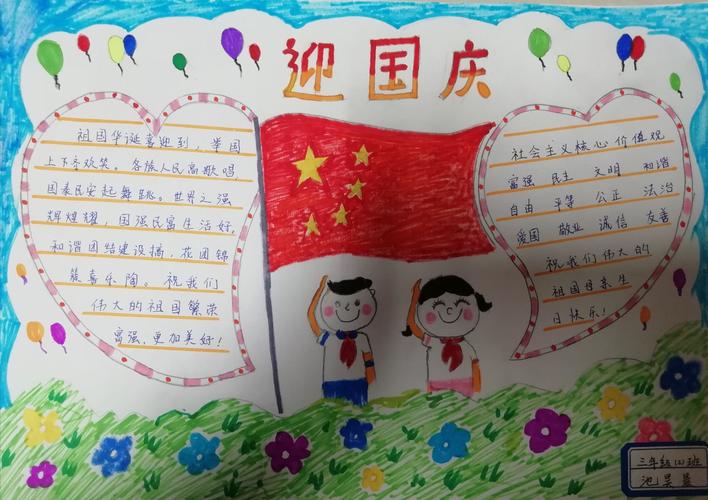 迎国庆
祖国华诞喜迎到，举国
上下齐欢笑。各族人民高歌唱
国泰民安起舞跳。世界之强
辉煌耀，国强民富生活好，
和谐团结建设搞，花团锦
簇喜乐陶。祝我们
伟大的祖国繁荣
富强、更加美好！
社会主义核心价值观
富强 民主 文明 和谐
自由 平等 公正 法治
爱国 敬业 诚信 友善
祝我们伟大的
祖国母亲生
日快乐！
三年级(2)班
池昊